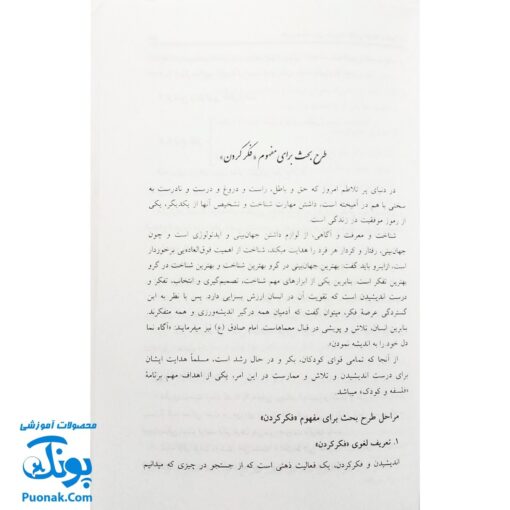 طرح بحث برای مفهوم «فکر کردن»
در دنیای پر تلاطم امروز که حق و باطل، راست و دروغ و درست و نادرست به
سختی با هم در آمیخته است، داشتن مهارت شناخت و تشخیص آنها از یکدیگر، یکی
از رموز موفقیت در زندگی است.
شناخت و معرفت و آگاهی، از لوازم داشتن جهان‌بینی و ایدئولوژی است و چون
جهان‌بینی، رفتار و کردار هر فرد را هدایت میکند، شناخت از اهمیت فوق‌العاده‌یی برخوردار
است، ازاینرو باید گفت: بهترین جهان‌بینی در گرو بهترین شناخت و بهترین شناخت در گرو
بهترین تفکر است. بنابرین یکی از ابزارهای مهم شناخت، تصمیم‌گیری و انتخاب، تفکر و
درست اندیشیدن است که تقویت آن در انسان ارزش بسزایی دارد. پس با نظر به این
گستردگی عرصهٔ فکر، میتوان گفت که آدمیان همه درگیر اندیشه‌ورزی و همه متفکرند.
بنابرین انسان، تلاش و پویشی در قبال معماهاست. امام صادق (ع) نیز میفرمایند: «آگاه نما
دل خود را به اندیشه نمودن»
از آنجا که تمامی قوای کودکان، بکر و در حال رشد است، مسلماً هدایت ایشان
برای درست اندیشیدن و تلاش و ممارست در این امر، یکی از اهداف مهم برنامهٔ
«فلسفه و کودک» میباشد.
مراحل طرح بحث برای مفهوم «فکرکردن»
۱. تعریف لغوی «فکرکردن»
اندیشیدن و فکرکردن، یک فعالیت ذهنی است که از جستجو در چیزی که میدانیم
محصولات آموزشی
پونک
Puonak.Com